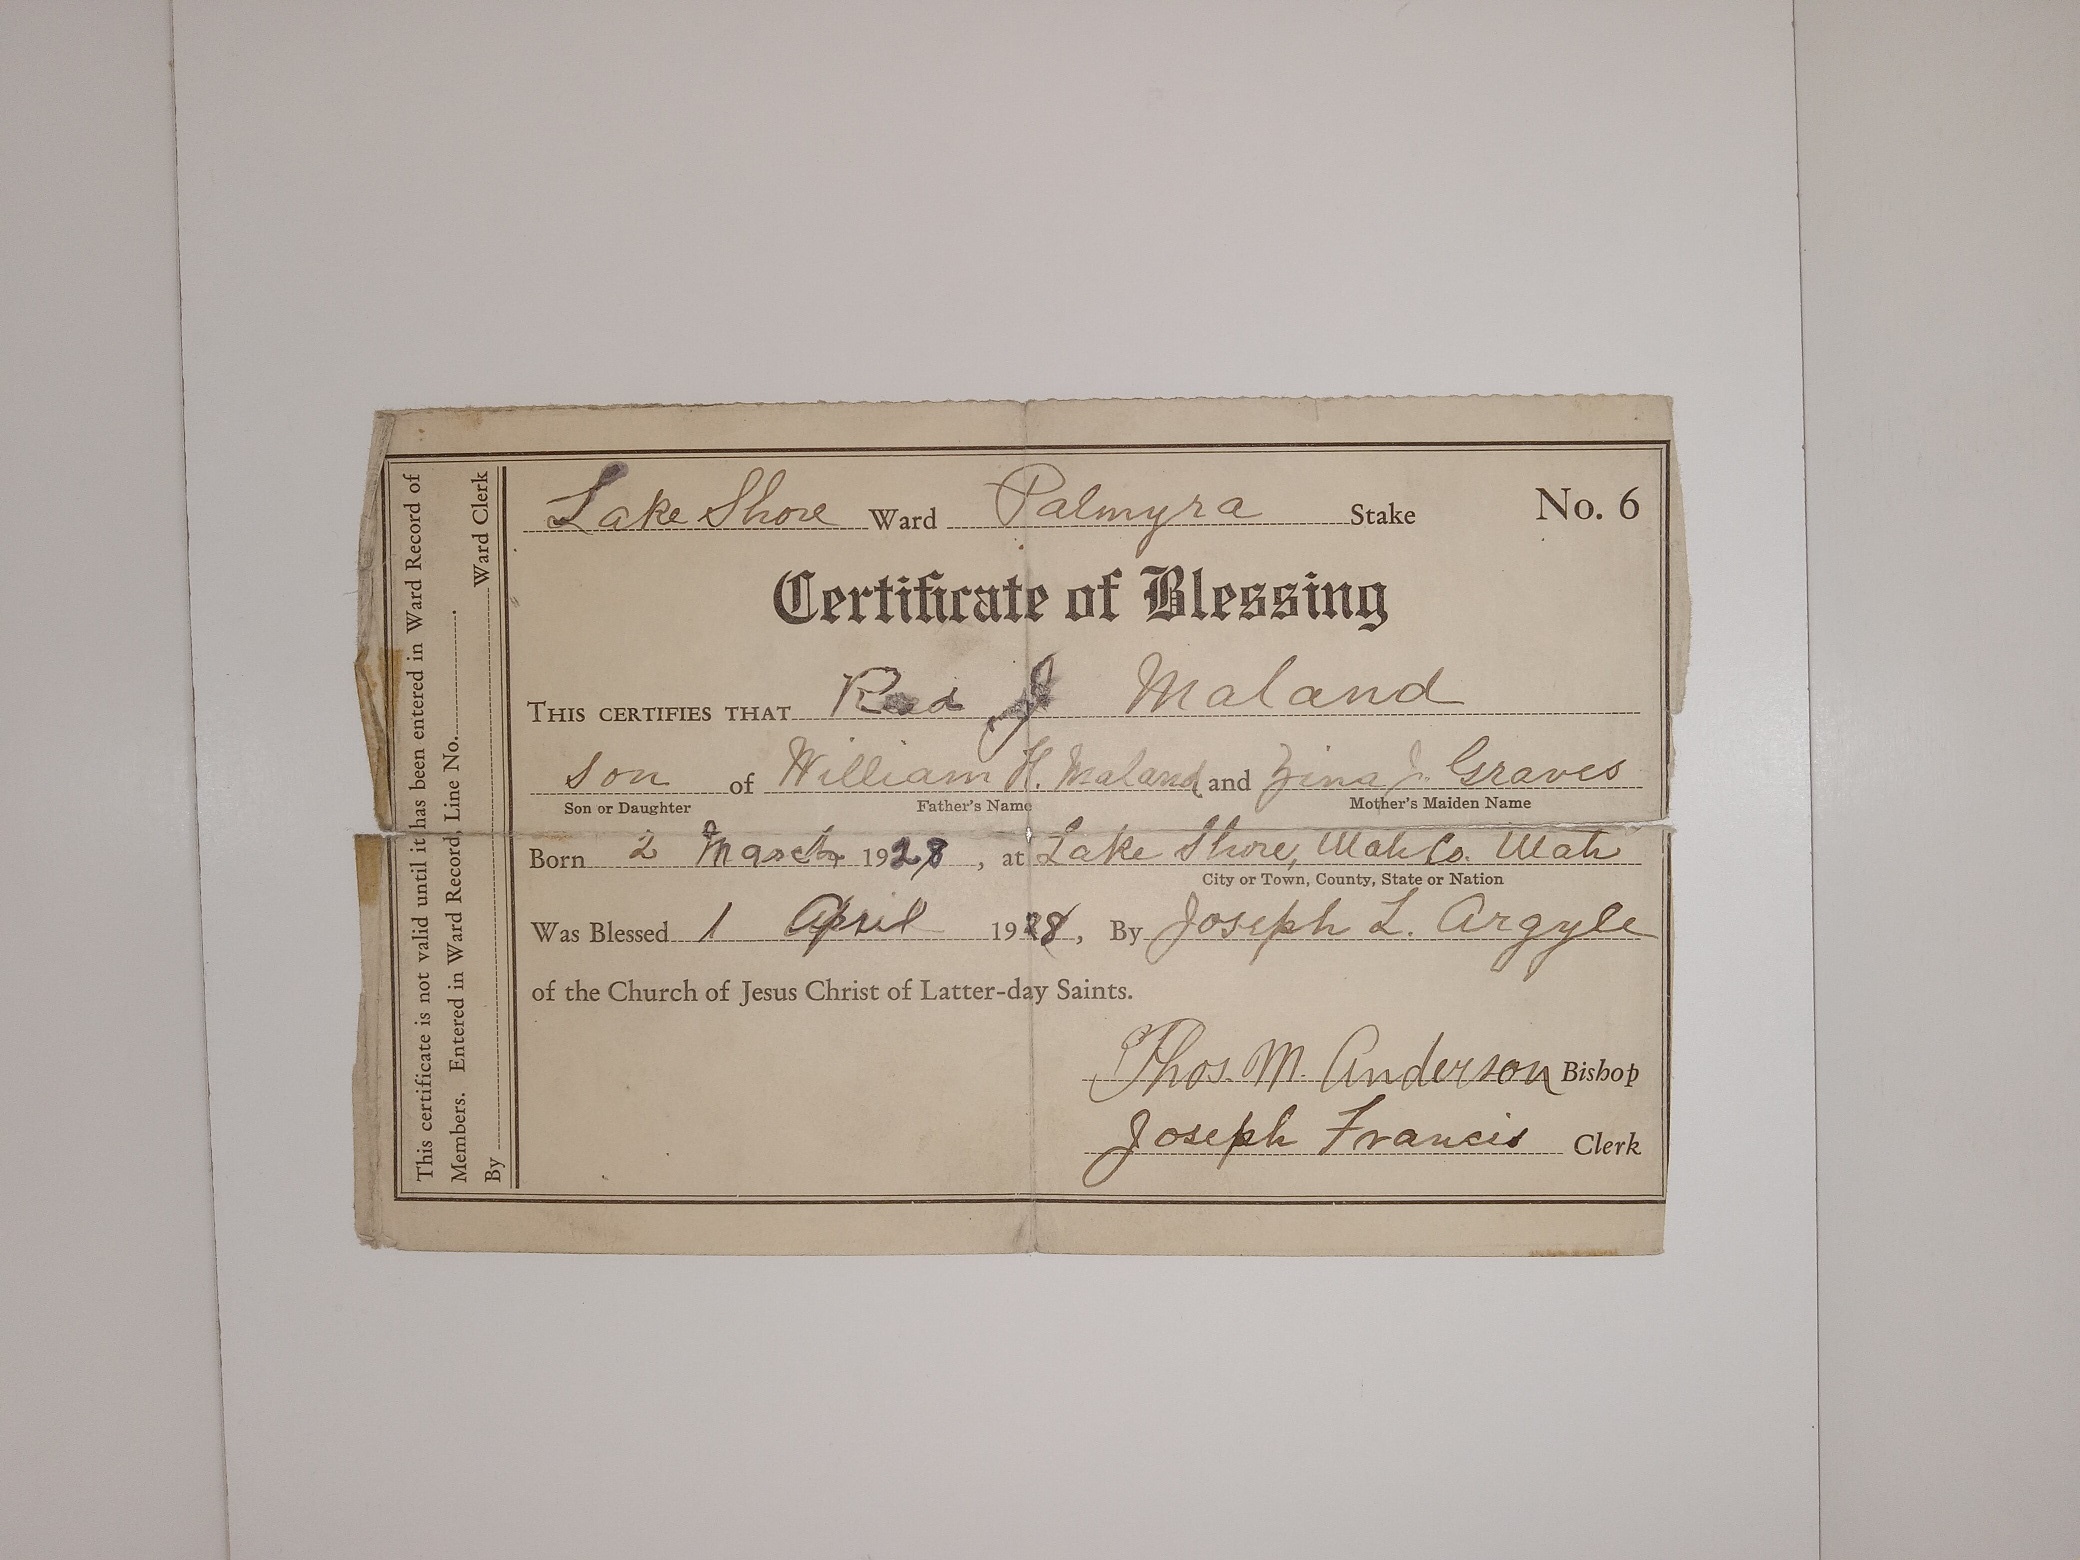 Lake Shore Ward Palmyra Stake No. 6
Certificate of Blessing
THIS CERTIFIES THAT J Maland
son of William H. Maland and Zina J. Graves
Son or Daughter Father's Name Mother's Maiden Name
Born 2 March 1928, at Lake Shore, Utah Co. Utah
City or Town, County, State or Nation
Was Blessed 1 April 1928, By Joseph L. Argyle
of the Church of Jesus Christ of Latter-day Saints.
Thos. M. Anderson Bishop
Joseph Francis Clerk
This certificate is not valid until it has been entered in Ward Record of
Members. Entered in Ward Record, Line No.
By Ward Clerk